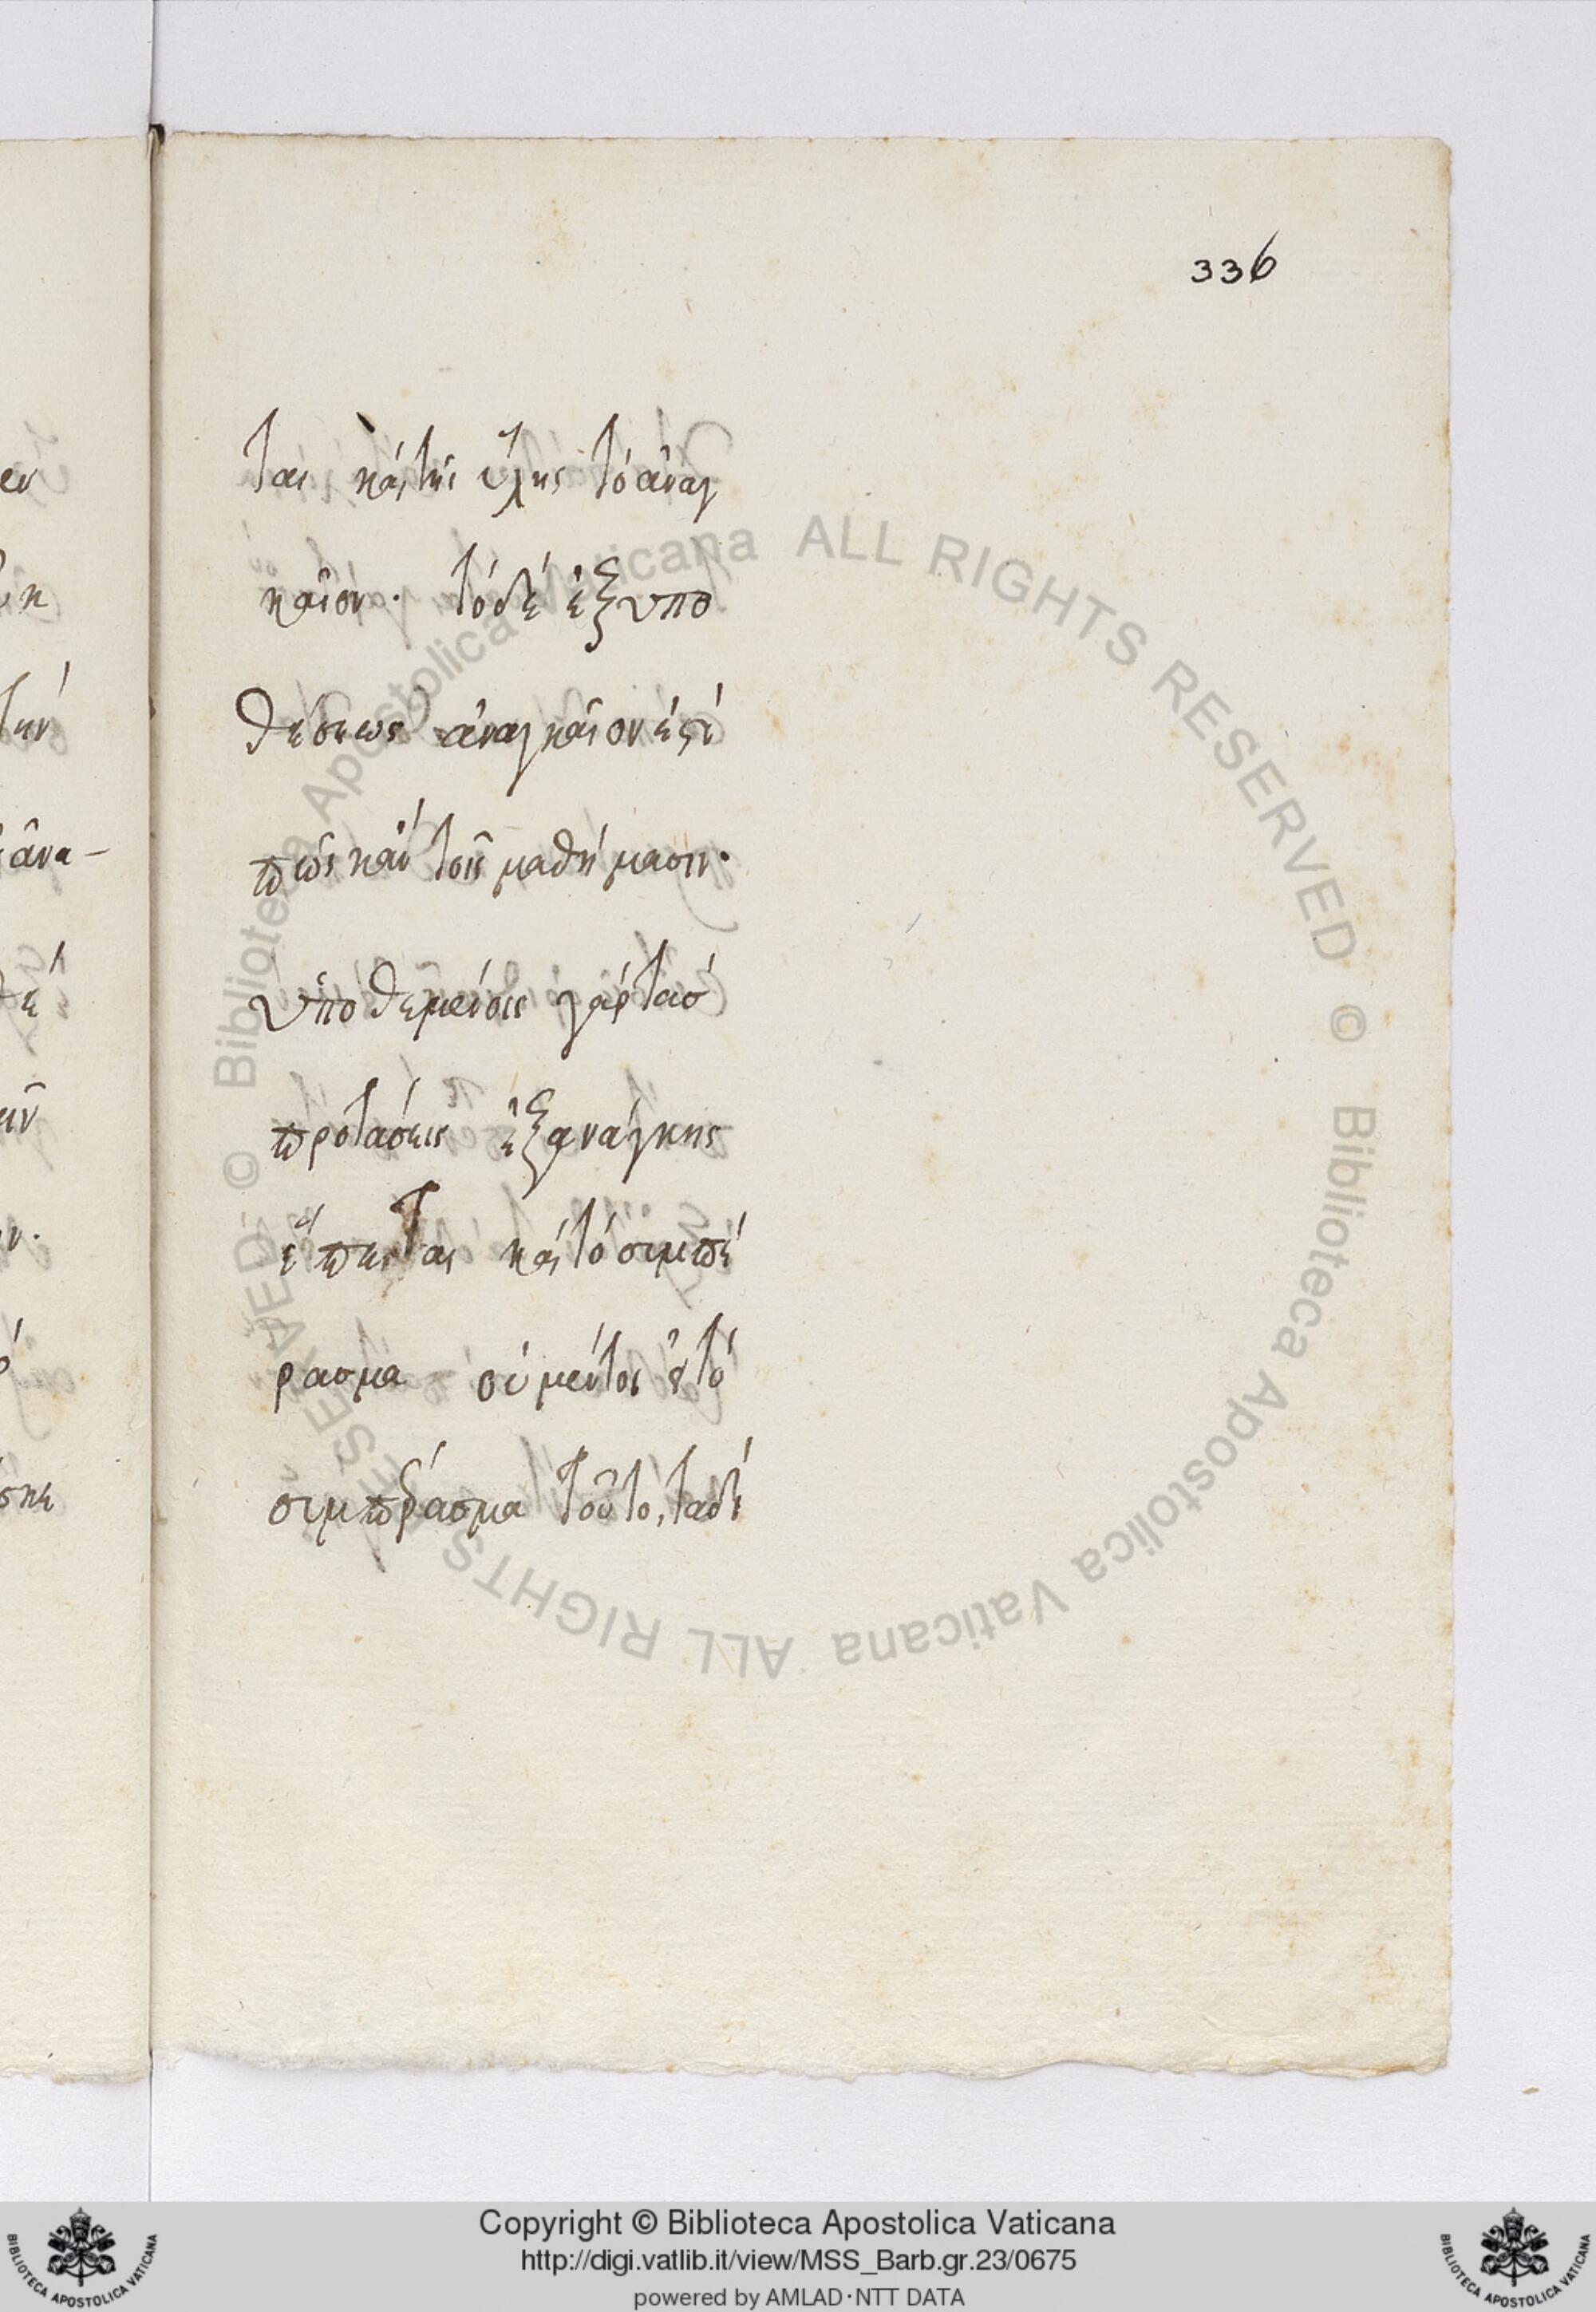 336
ται καὶ τῆς ὕλης τὸ ἀναγ
καῖον. τὸ δὲ ἐξ υπο
θέσεως ἀναγκαῖον ἐστὶ
πῶς κἀν τοῖς μαθήμασιν.
ὑποθεμένοις γὰρ τὰσ
προτάσεις ἐξ ἀνάγκης
ἕπεται καὶ τὸ συμπέ
ρασμα οὐ μέντοι εἰ τὸ
συμπέρασμα τοῦτο, τάδε
© Biblioteca Apostolica Vaticana ALL RIGHTS RESERVED © Biblioteca Apostolica Vaticana ALL RIGHTS RESERVED
Copyright © Biblioteca Apostolica Vaticana
http://digi.vatlib.it/view/MSS_Barb.gr.23/0675
powered by AMLAD·NTT DATA
BIBLIOTECA APOSTOLICA VATICANA
BIBLIOTECA APOSTOLICA VATICANA